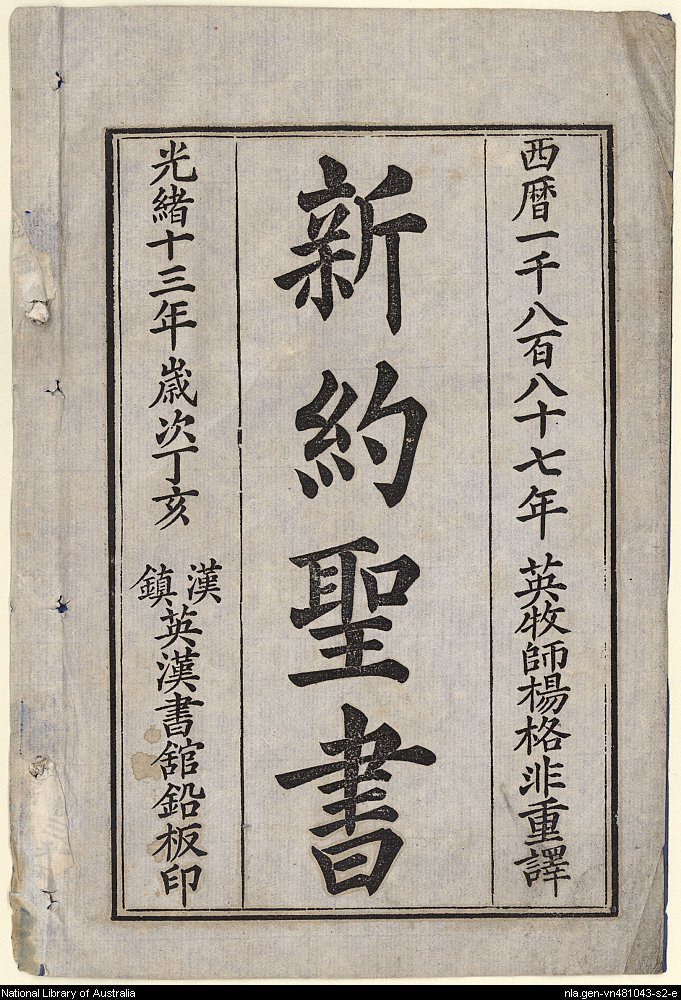 西暦一千八百八十七年 英牧師楊格非重譯
新約聖書
光緒十三年歲次丁亥 漢鎮英漢書舘鉛板印
National Library of Australia
nla.gen-vn481043-s2-e